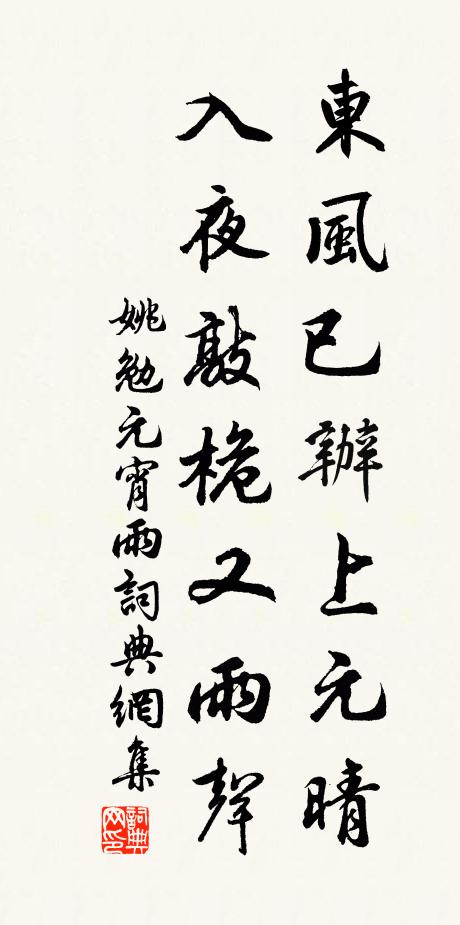 東風已辦上元晴
入夜敲桅又雨聲
姚勉元宵雨詞典網集
詞典网印